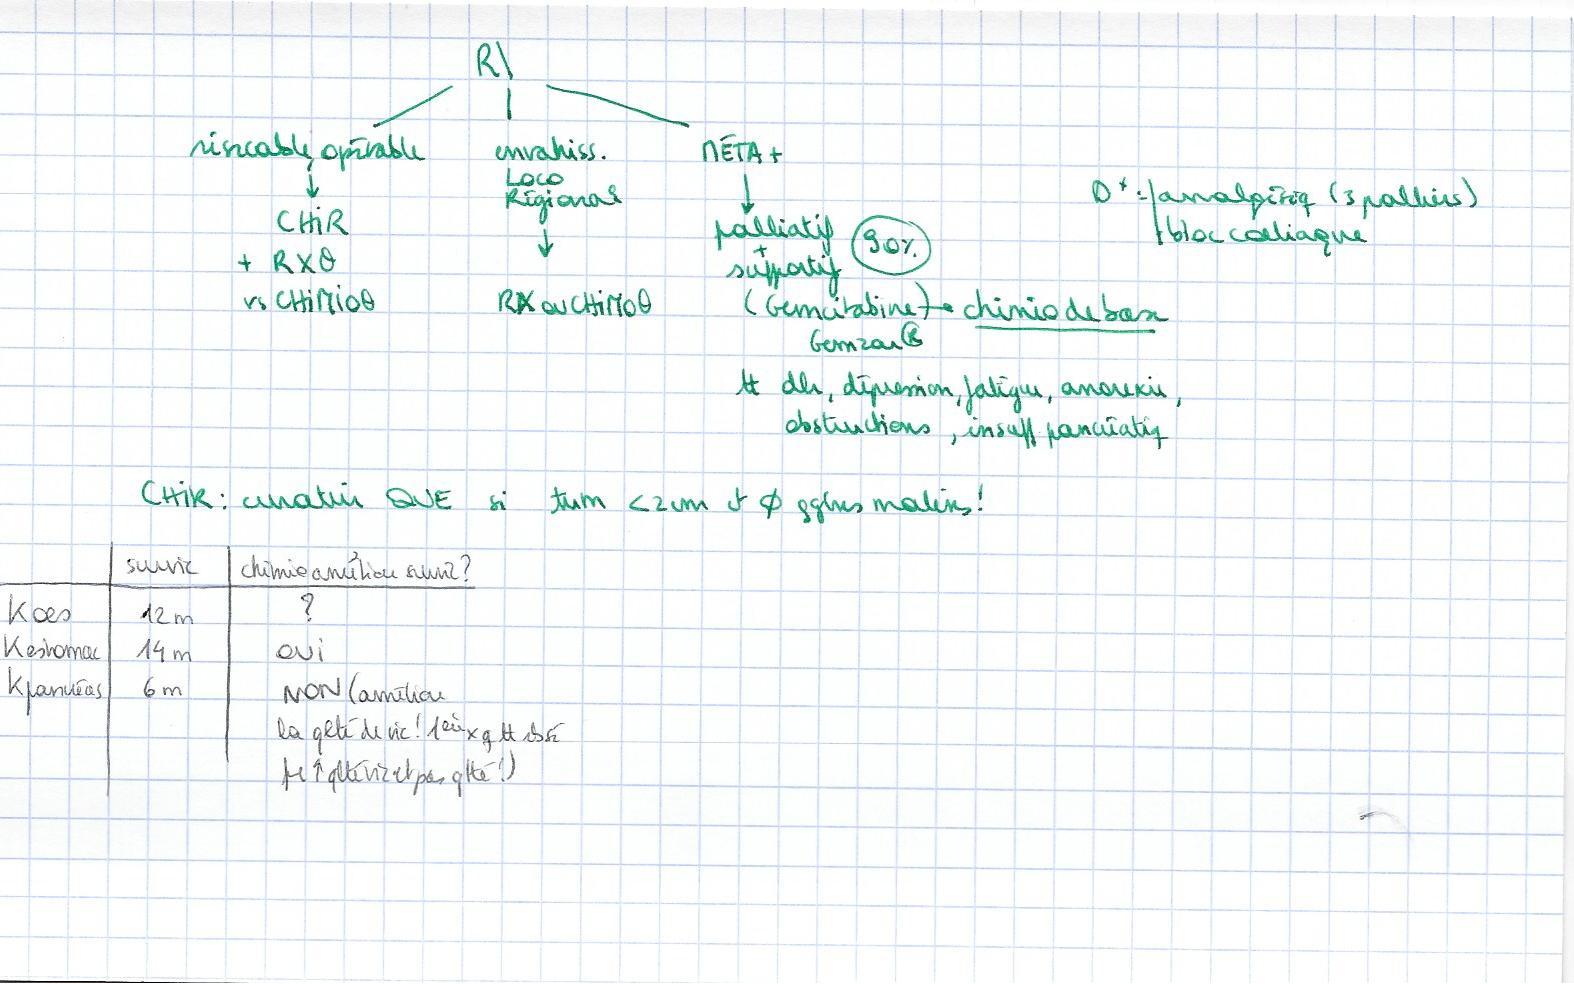 R\
résécable, opérable
CHiR
+ RXθ
vs CHiMioθ
envahiss.
Loco
Régional
RX ou CHiMioθ
MÉTA +
palliatif
+
supportif
90%
(Gemcitabine) → chimio de base
Gemzar®
tt dlr, dépression, fatigue, anorexie,
obstructions, insuff pancréatiq
D+ : analgésiq (3 palliers)
bloc coeliaque
CHiR : curatrice QUE si tum <2cm et ∅ gglns malins!
survie | chimio améliore survie?
K oes | 12 m | ?
K estomac | 14 m | OUI
K pancréas | 6 m | NON (améliore
la qlté de vie! 1ère x q tt
↑ qlté vie et pas qtté!)